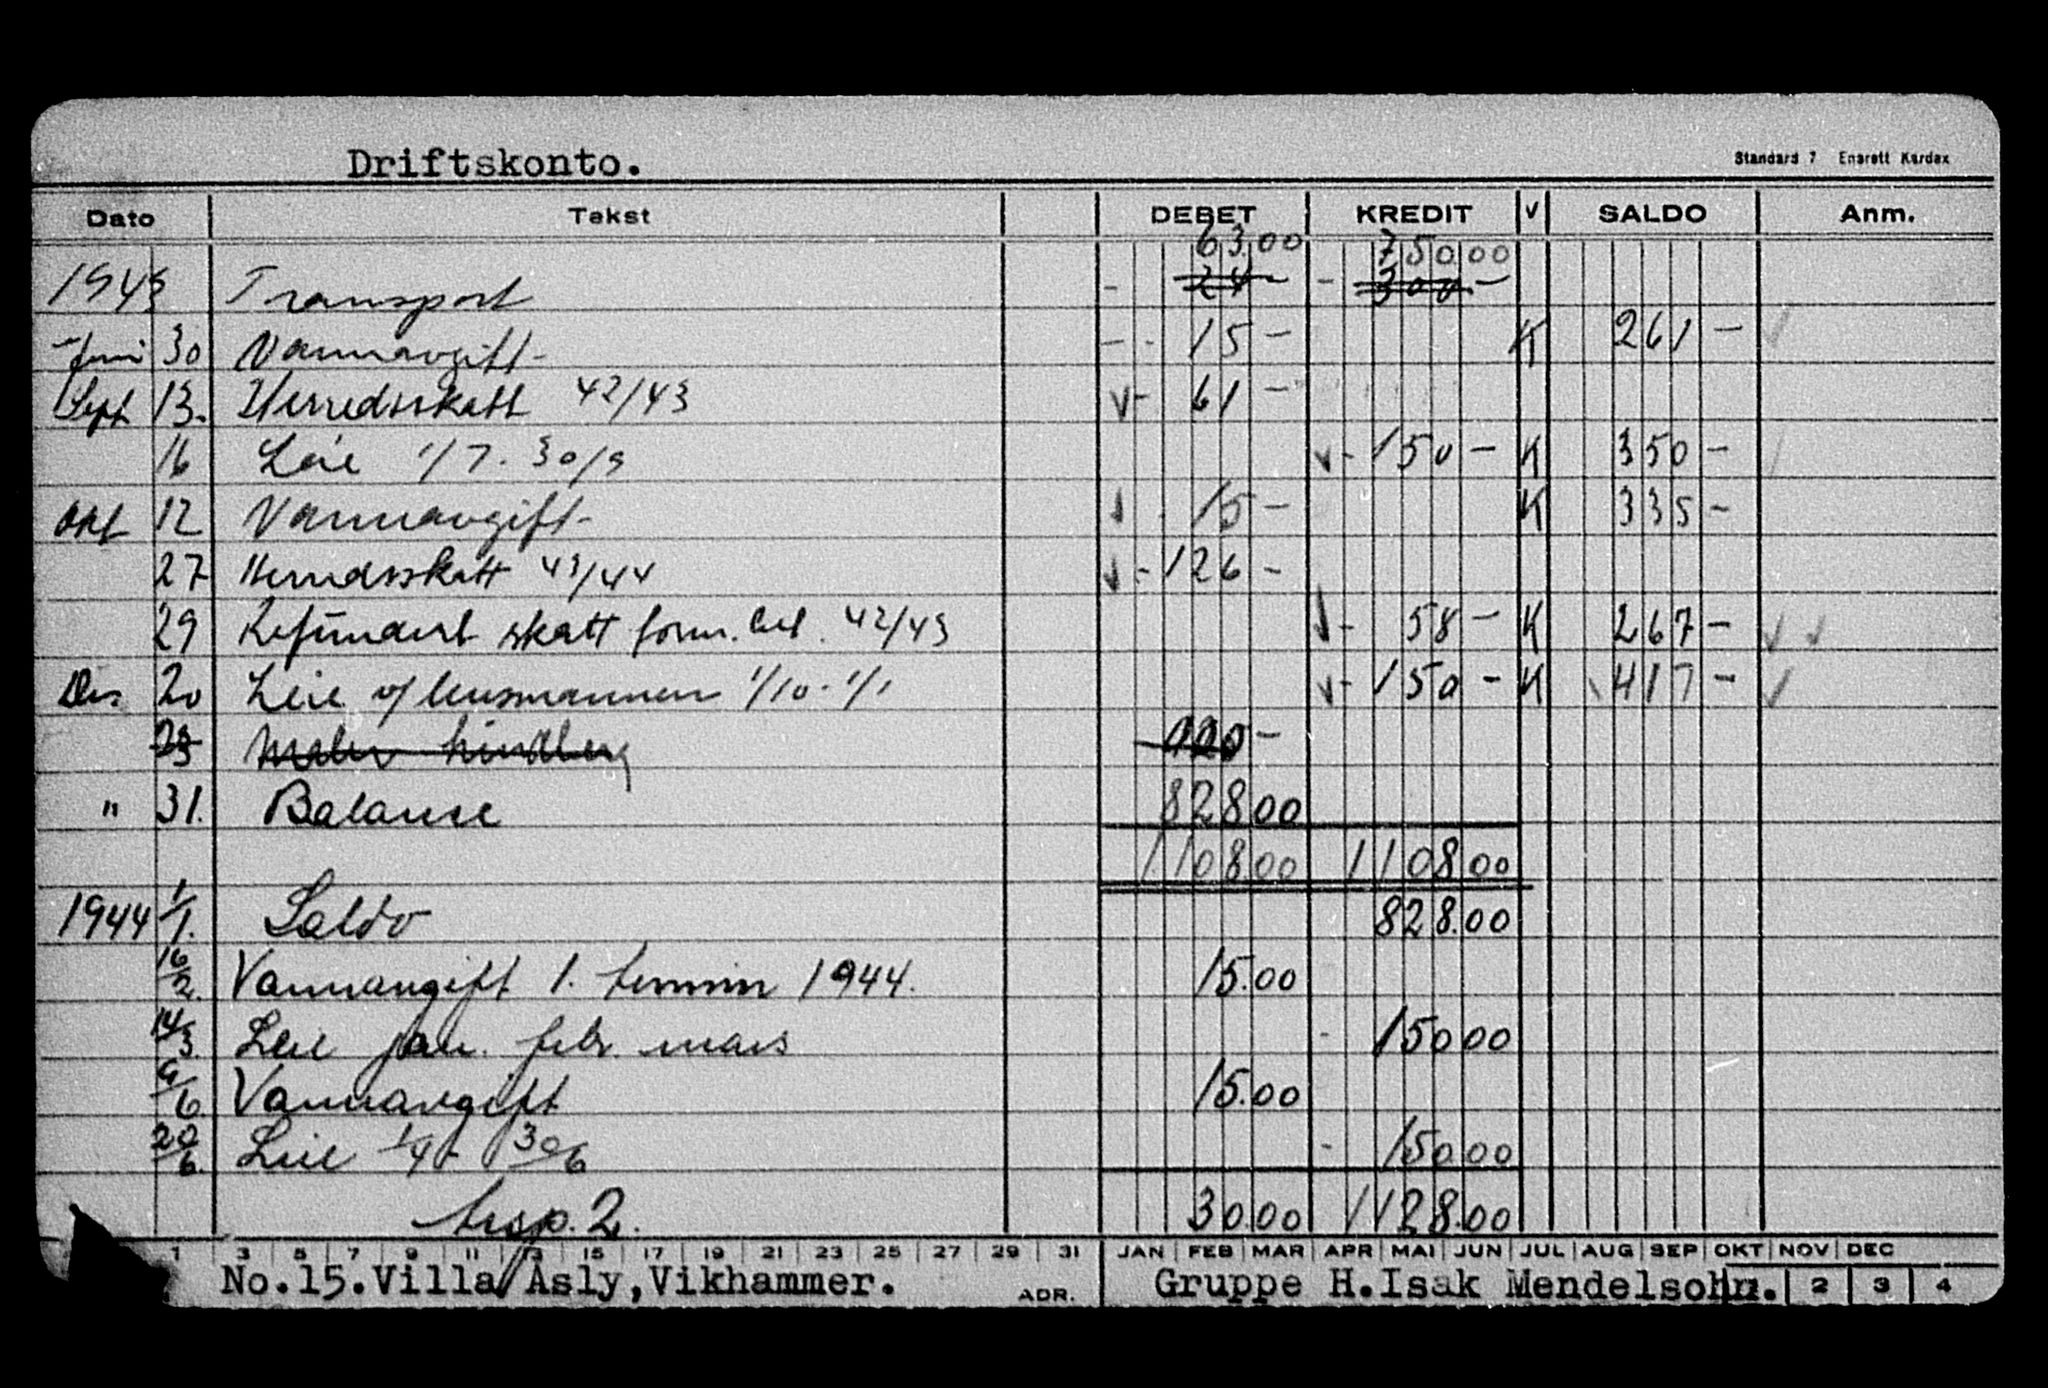 Driftskonto.
Standard 7 Enerett Kardex
Dato Tekst DEBET KREDIT V SALDO Anm.
63.00 750.00
1943 Transport - 24 - - 300 -
Juni 30 Vannavgift - 15 - K 261 -
Sept 13. Herredsskatt 42/43 61 -
16 Leie 1/7 - 30/9 150 - K 350 -
Okt 12 Vannavgift - 15 - K 335 -
27 Herredsskatt 43/44 126 -
29 Refundert skatt form. 42/43 58 - K 267 -
Des 20 Leie v/ lensmannen 1/10 - 1/1 150 - K 417 -
Maler Lindberg 120 -
" 31. Balanse 828.00
1108.00 1108.00
1944 1/1. Saldo 828.00
16/2. Vannavgift 1. termin 1944. 15.00
14/3. Leie jan. febr. mars 150.00
9/6 Vannavgift 15.00
20/6. Leie 1/4 - 30/6 150.00
trsp. 2. 30.00 1128.00
1 3 5 7 9 11 13 15 17 19 21 23 25 27 29 31 JAN FEB MAR APR MAI JUN JUL AUG SEP OKT NOV DEC
No.15.Villa Åsly,Vikhammer. ADR. Gruppe H.Isak Mendelsohn. 2 3 4